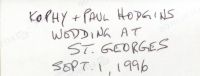 KOPHY + PAUL HODGINS
WEDDING AT
ST. GEORGES
SEPT. 1, 1996